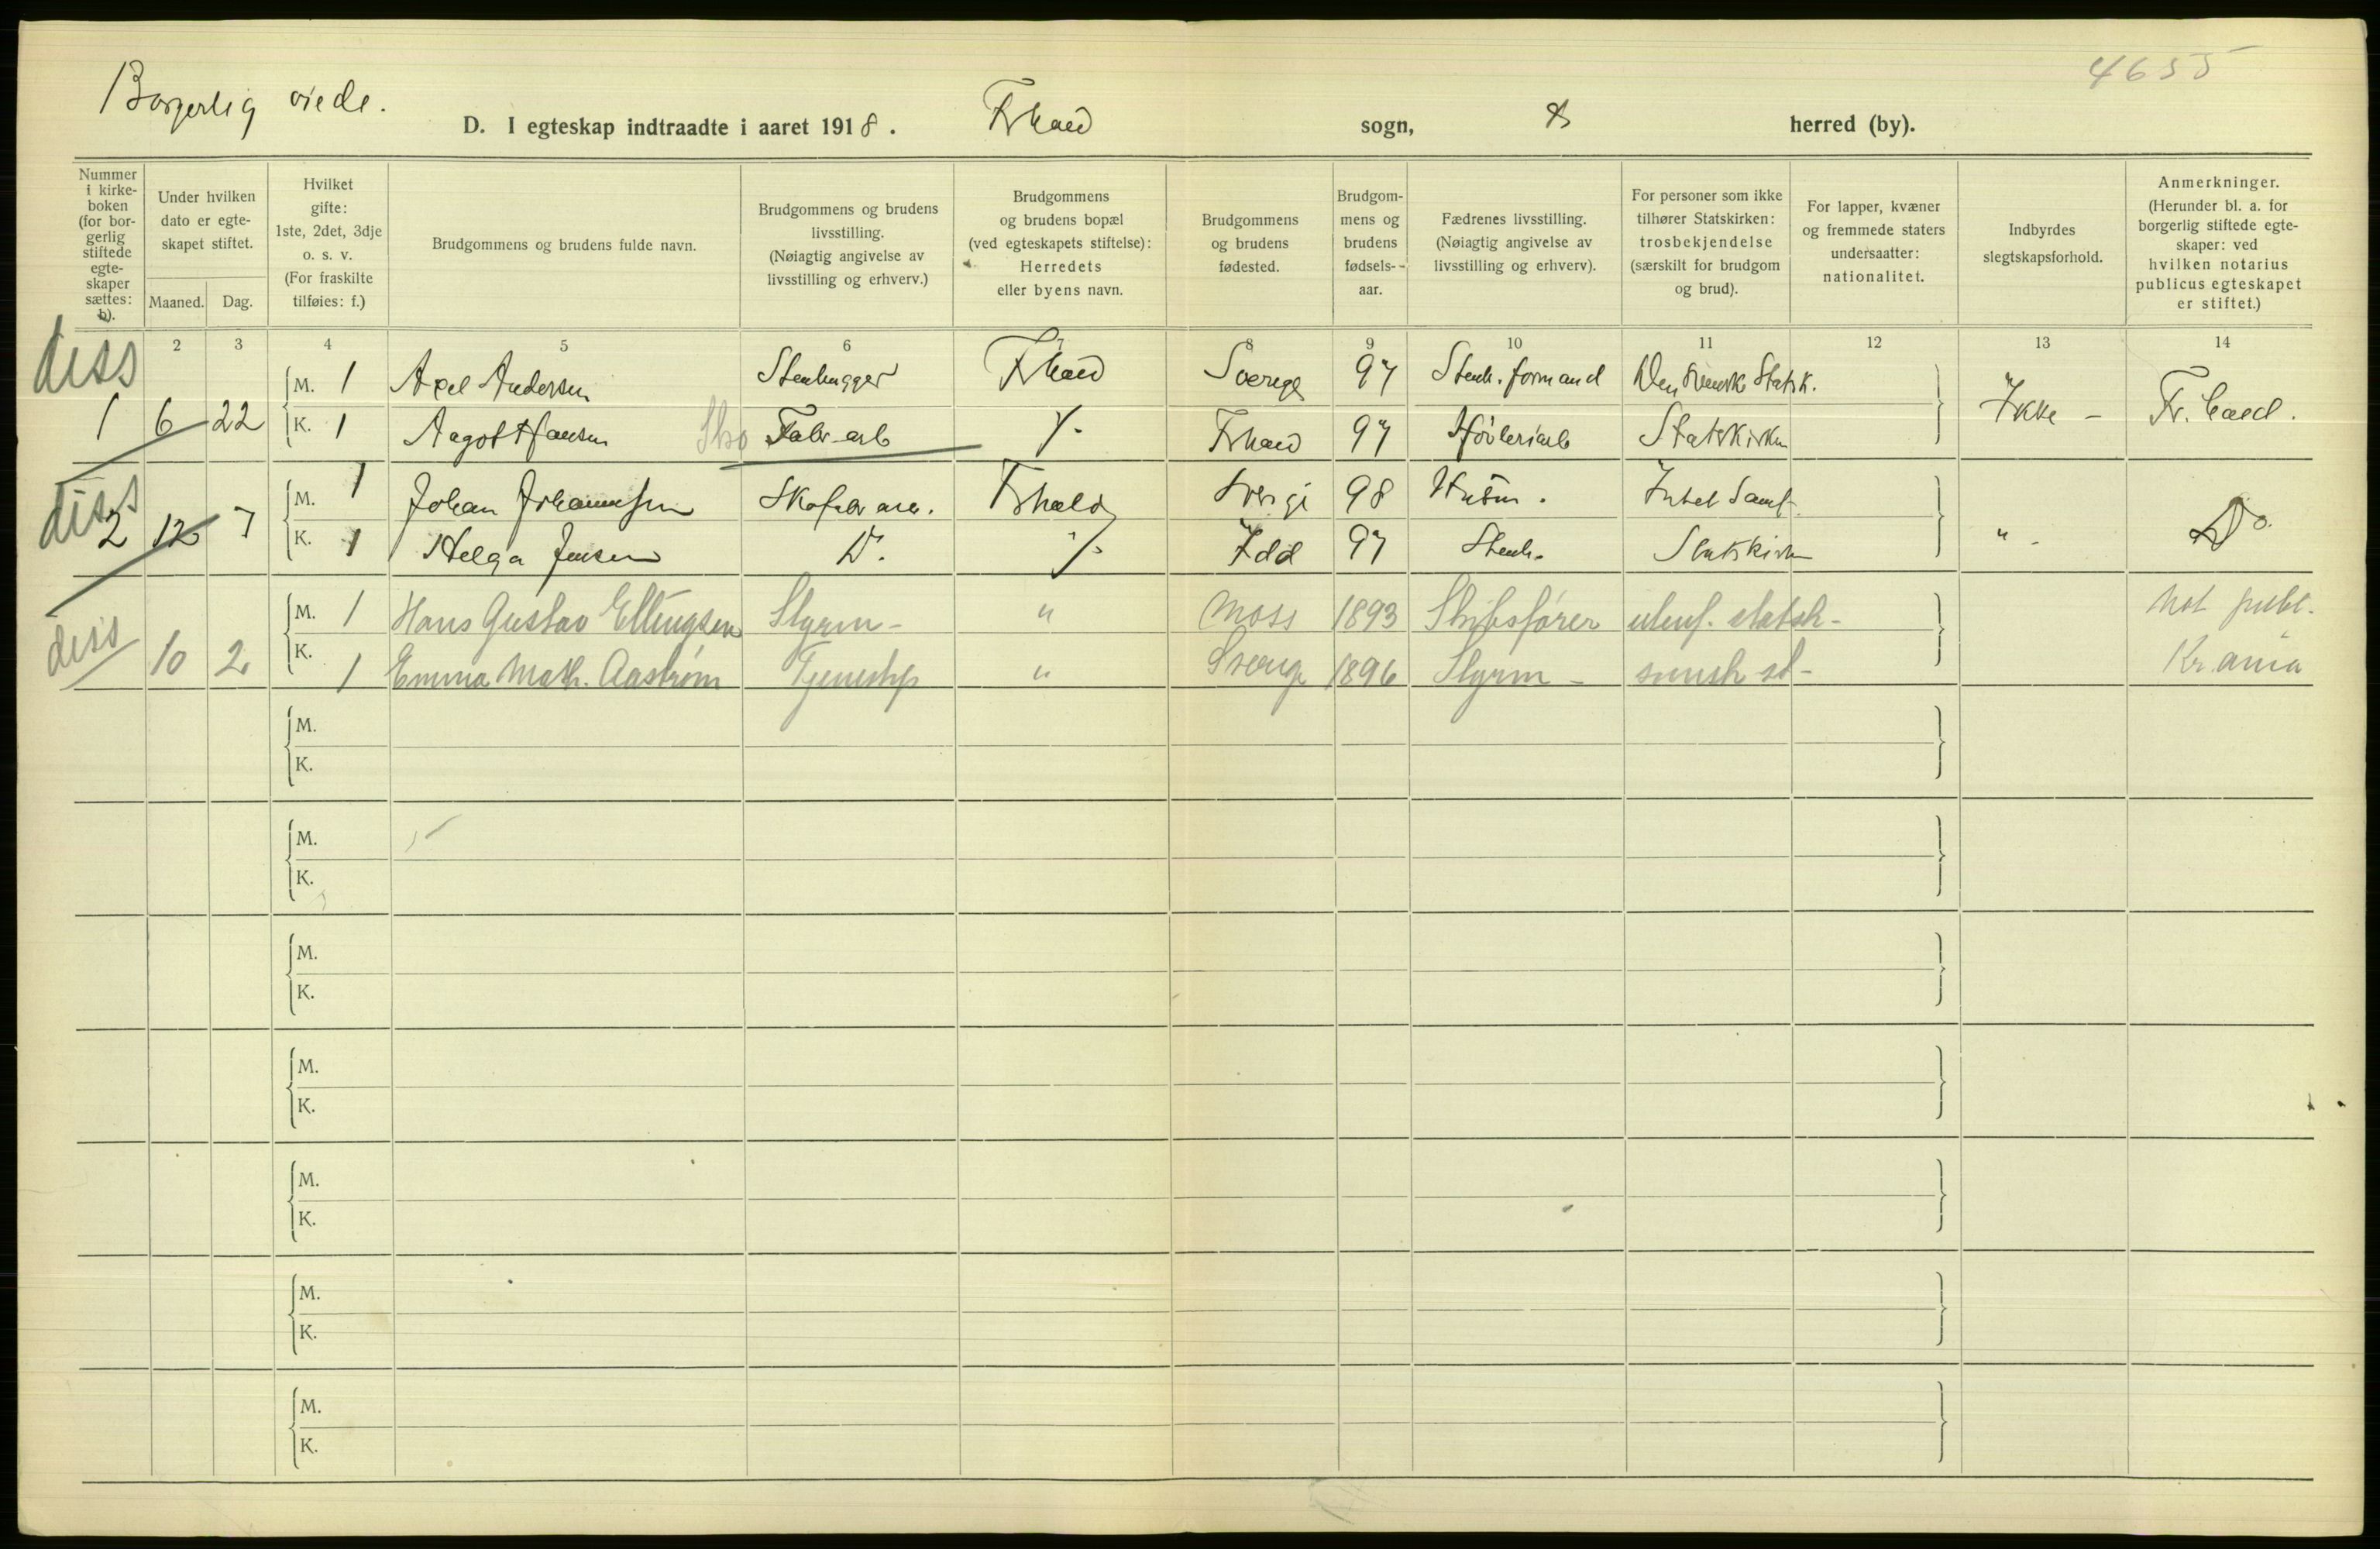 4655
Borgerlig viede.
D. I egteskap indtraadte i aaret 1918. Frhald sogn, herred (by).
Nummer i kirke-boken (for bor-gerlig stiftede egte-skaper sættes: b).
Under hvilken dato er egte-skapet stiftet.
Maaned. Dag.
Hvilket gifte: 1ste, 2det, 3dje o. s. v. (For fraskilte tilføies: f.)
Brudgommens og brudens fulde navn.
Brudgommens og brudens livsstilling. (Nøiagtig angivelse av livsstilling og erhverv.)
Brudgommens og brudens bopæl (ved egteskapets stiftelse): Herredets eller byens navn.
Brudgommens og brudens fødested.
Brudgom-mens og brudens fødsels-aar.
Fædrenes livsstilling. (Nøiagtig angivelse av livsstilling og erhverv).
For personer som ikke tilhører Statskirken: trosbekjendelse (særskilt for brudgom og brud).
For lapper, kvæner og fremmede staters undersaatter: nationalitet.
Indbyrdes slegtskapsforhold.
Anmerkninger. (Herunder bl. a. for borgerlig stiftede egte-skaper: ved hvilken notarius publicus egteskapet er stiftet.)
2 3 4 5 6 7 8 9 10 11 12 13 14
diss
M. 1 Axel Andersen Stenhugger Frhald Sverige 97 Stenh. formand Den svenske Statsk.
1 6 22 K. 1 Aagot Hansen Sko Fabr-arb Frhald 97 Høvleriarb Statskirken Ikke - Fr.hald.
diss
M. 1 Johan Johannesen Skofabr arb. Frhald Sverge 98 Husm. Intet Samf.
2 12 7 K. 1 Helga Jensen D. Idd 97 Stenh. Statskirken " - Do.
diss
M. 1 Hans Gustav Ellingsen Styrm- " Moss 1893 Skibsfører utenf. statsk- Not publ.
10 2 K. 1 Emma Math. Aastrøm Tjenestep " Sverige 1896 Styrm- svensk st- Kr.ania
M.
K.
M.
K.
M.
K.
M.
K.
M.
K.
M.
K.
M.
K.